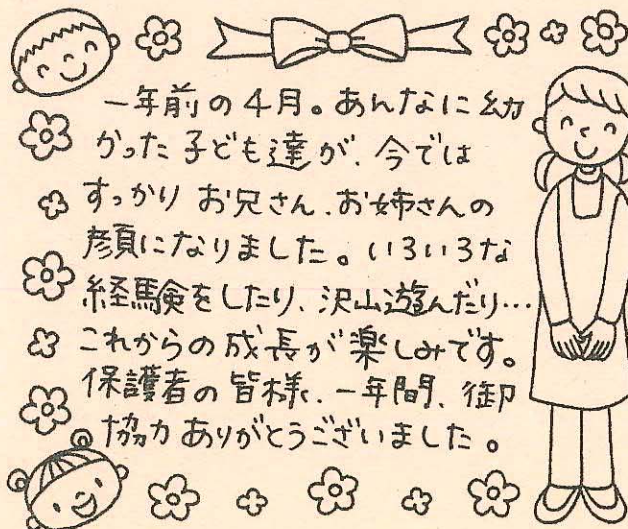 一年前の4月。あんなに幼
かった子ども達が、今では
すっかりお兄さん、お姉さんの
顔になりました。いろいろな
経験をしたり、沢山遊んだり…
これからの成長が楽しみです。
保護者の皆様、一年間、御
協力ありがとうございました。